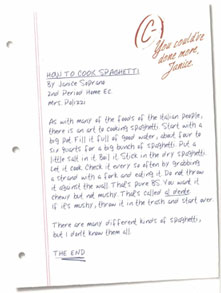 C-
You could've
done more,
Janice.
HOW TO COOK SPAGHETTI
By Janice Soprano
2nd Period Home Ec.
Mrs. Palizzi
As with many of the foods of the Italian people,
there is an art to cooking spaghetti. Start with a
big pot. Fill it full of good water, about four to
six quarts for a big bunch of spaghetti. Put a
little salt in it. Boil it. Stick in the dry spaghetti.
Let it cook. Check it every so often by grabbing
a strand with a fork and eating it. Do not throw
it against the wall. That's pure BS. You want it
chewy but not mushy. That's called al dente.
If it's mushy, throw it in the trash and start over.
There are many different kinds of spaghetti,
but I don't know them all.
THE END